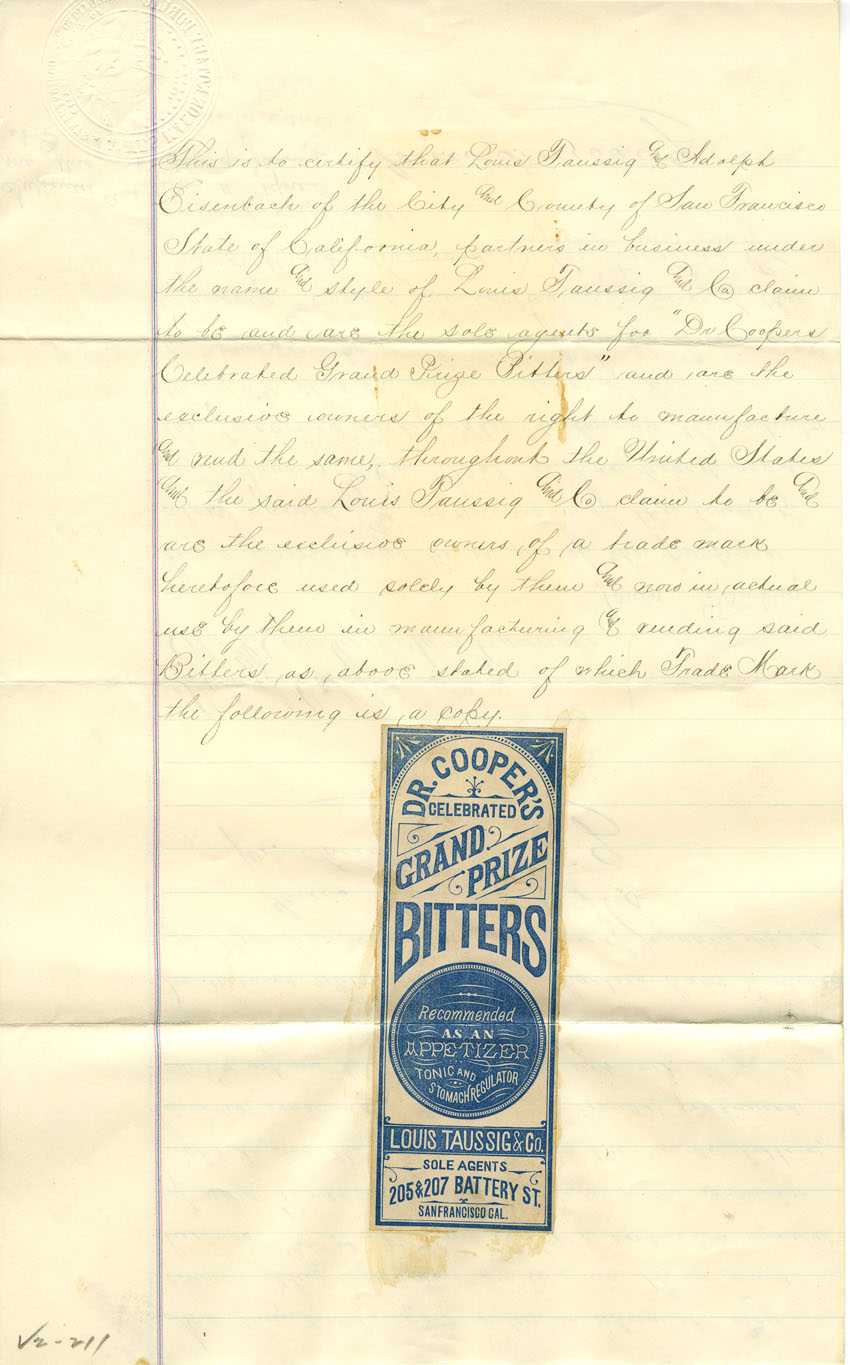 This is to certify that Louis Taussig and Adolph
Eisenbach of the City and County of San Francisco
State of California, partners in business under
the name and style of Louis Taussig and Co claim
to be and are the sole agents for "Dr Coopers
Celebrated Grand Prize Bitters" and are the
exclusive owners of the right to manufacture
and vend the same, throughout the United States
And the said Louis Taussig and Co claim to be and
are the exclusive owners of a trade mark
heretofore used solely by them and now in actual
use by them in manufacturing and vending said
Bitters as above stated of which Trade Mark
the following is a copy.
DR. COOPER'S
CELEBRATED
GRAND
PRIZE
BITTERS
Recommended
AS AN
APPETIZER
TONIC AND
STOMACH REGULATOR
LOUIS TAUSSIG & Co.
SOLE AGENTS
205 & 207 BATTERY ST.
SAN FRANCISCO CAL.
V2-211